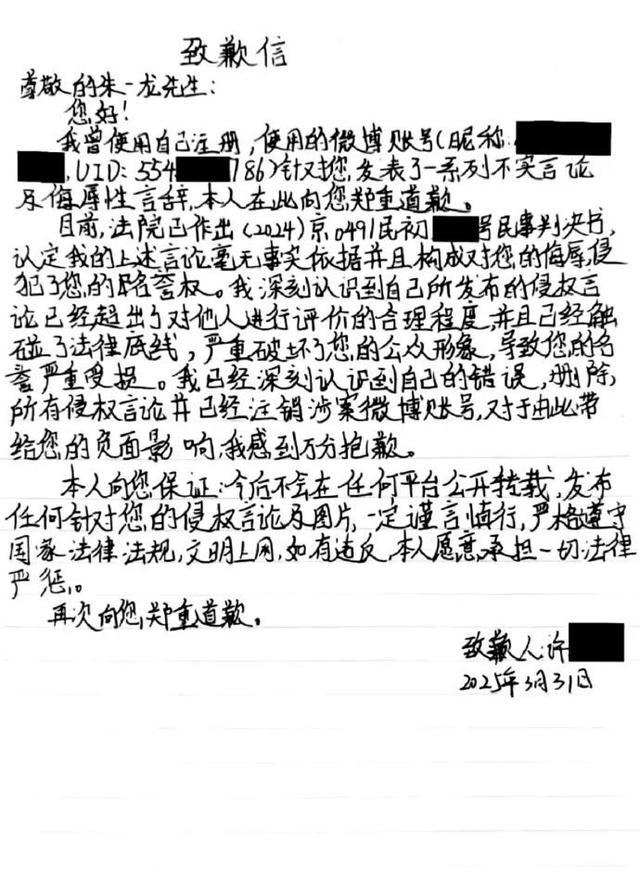 致歉信
尊敬的朱一龙先生:
您好!
我曾使用自己注册,使用的微博账号(昵称:
,UID:554 786)针对您,发表了一系列不实言论
及侮辱性言辞,本人在此向您郑重道歉。
目前,法院已作出(2024)京0491民初 号民事判决书,
认定我的上述言论毫无事实依据并且构成对您的侮辱,侵
犯了您的名誉权。我深刻认识到自己所发布的侵权言
论已经超出了对他人进行评价的合理程度,并且已经触
碰了法律底线,严重破坏了您的公众形象,导致您的名
誉严重受损。我已经深刻认识到自己的错误,删除,
所有侵权言论并已经注销涉案微博账号,对于由此带
给您的负面影响,我感到万分抱歉。
本人向您保证:今后不会在任何平台公开转载,发布
任何针对您的侵权言论及图片,一定谨言慎行,严格遵守
国家法律法规,文明上网,如有违反,本人愿意承担一切法律
严惩。
再次向您郑重道歉。
致歉人:许
2025年3月31日